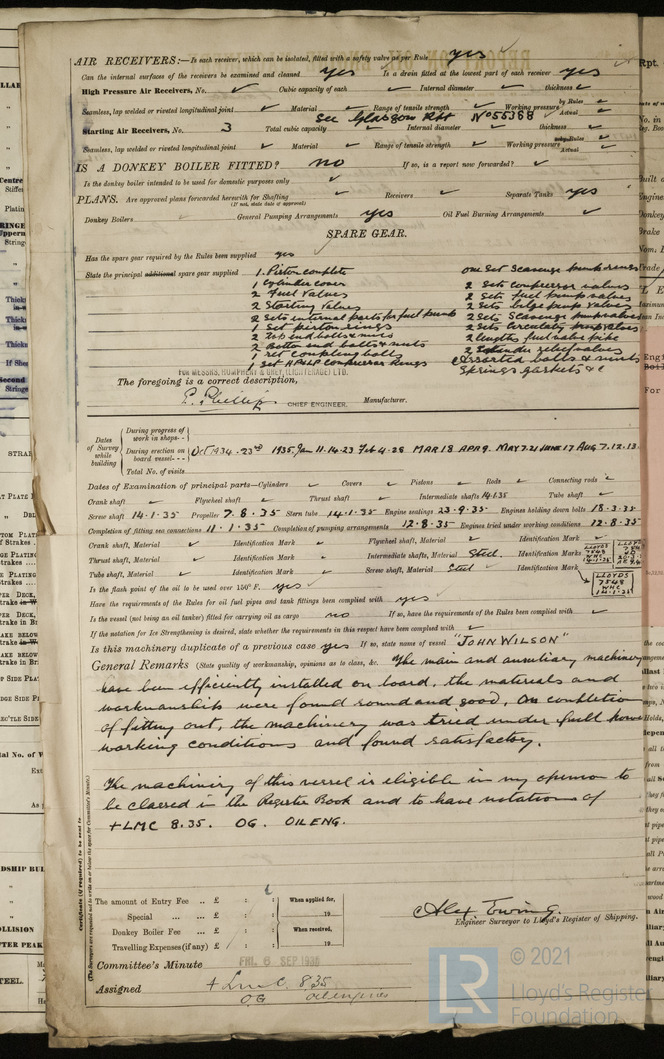 AIR RECEIVERS:—Is each receiver, which can be isolated, fitted with a safety valve as per Rule yes
Can the internal surfaces of the receivers be examined and cleaned yes Is a drain fitted at the lowest part of each receiver yes
High Pressure Air Receivers, No. Cubic capacity of each Internal diameter thickness
Seamless, lap welded or riveted longitudinal joint Material Range of tensile strength Working pressure by Rules Actual
See Glasgow Rpt No 55368
Starting Air Receivers, No. 3 Total cubic capacity Internal diameter thickness
Seamless, lap welded or riveted longitudinal joint Material Range of tensile strength Working pressure by Rules Actual
IS A DONKEY BOILER FITTED? no If so, is a report now forwarded?
Is the donkey boiler intended to be used for domestic purposes only
PLANS. Are approved plans forwarded herewith for Shafting Receivers Separate Tanks yes
(If not, state date of approval)
Donkey Boilers General Pumping Arrangements yes Oil Fuel Burning Arrangements
SPARE GEAR.
Has the spare gear required by the Rules been supplied yes
State the principal additional spare gear supplied 1 Piston complete one set Scavenge pump rings
1 Cylinder cover 2 Sets compressor valves
2 Fuel Valves 2 Sets fuel pump valves
2 Starting Valves 2 Sets bilge pump valves
2 Sets internal parts for fuel pump 2 Sets Scavenge pump valves
1 Set piston rings 2 Sets Circulatg pump valves
2 Top end bolts & nuts 2 lengths fuel valve pipe
2 Bottom end bolts & nuts 2 relief valves
1 set coupling bolts Assorted bolts & nuts
1 Set HP & LP Compressor Rings Springs gaskets &c
FOR MESSRS. HUMPHERY & GREY, (LIGHTERAGE) LTD.
The foregoing is a correct description,
CHIEF ENGINEER. Manufacturer.
Dates of Survey while building
During progress of work in shops - -
During erection on board vessel - - - Oct 1934. 23rd 1935. Jan 11.14.23 Feb 4.28 MAR 18 APR 9. MAY 7.21 JUNE 17 AUG 7.12.13.
Total No. of visits
Dates of Examination of principal parts—Cylinders Covers Pistons Rods Connecting rods
Crank shaft Flywheel shaft Thrust shaft Intermediate shafts 14.1.35 Tube shaft
Screw shaft 14.1.35 Propeller 7.8.35 Stern tube 14.1.35 Engine seatings 23.9.35 Engines holding down bolts 18.3.35
Completion of fitting sea connections 11.1.35 Completion of pumping arrangements 12.8.35 Engines tried under working conditions 12.8.35
Crank shaft, Material Identification Mark Flywheel shaft, Material Identification Mark
Thrust shaft, Material Identification Mark Intermediate shafts, Material Steel. Identification Marks
Tube shaft, Material Identification Mark Screw shaft, Material Steel Identification Mark
LLOYDS 7548 WHC 14.1.35
Is the flash point of the oil to be used over 150° F. yes
Have the requirements of the Rules for oil fuel pipes and tank fittings been complied with yes
Is the vessel (not being an oil tanker) fitted for carrying oil as cargo no If so, have the requirements of the Rules been complied with
If the notation for Ice Strengthening is desired, state whether the requirements in this respect have been complied with
Is this machinery duplicate of a previous case yes If so, state name of vessel "JOHN WILSON"
General Remarks (State quality of workmanship, opinions as to class, &c. The main and auxiliary machinery
have been efficiently installed on board, the materials and
workmanship were found sound and good. On completion
of fitting out, the machinery was tried under full power
working conditions and found satisfactory.
The machinery of this vessel is eligible in my opinion to
be classed in the Register Book and to have notation of
+LMC 8.35. OG. OIL ENG.
Certificate (if required) to be sent to
(The Surveyors are requested not to write on or below the space for Committee's Minute.)
The amount of Entry Fee .. £ : : When applied for,
Special ... ... £ : : 19
Donkey Boiler Fee ... £ : : When received,
Travelling Expenses (if any) £ : : 19
Alex Ewing.
Engineer Surveyor to Lloyd's Register of Shipping.
Committee's Minute FRI. 6 SEP 1935
Assigned + LMC. 8.35
OG Oil engines
© 2021
LR Lloyd's Register
Foundation